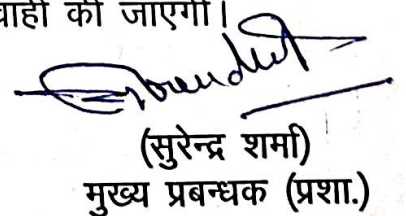 वाही की जाएगी।
(सुरेन्द्र शर्मा)
मुख्य प्रबन्धक (प्रशा.)